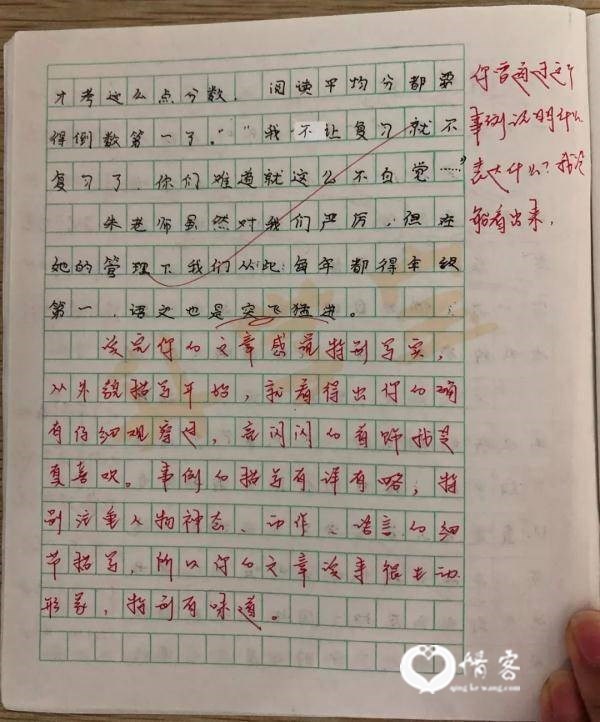 才考这么点分数，阅读平均分都要
得倒数第一了。“我不让复习就不
复习了，你们难道就这么不自觉……”
朱老师虽然对我们严厉，但在
她的管理下我们从此每年都得年级
第一，语文也是突飞猛进。
读完你的文章感觉特别写实，
从外貌描写开始，就看得出你的确
有仔细观察过，亮闪闪的首饰我是
更喜欢。事例的描写有详有略，特
别注重人物神态、动作、语言的细
节描写，所以你的文章读来很生动
形象，特别有味道。
你言通过这个
事例说明什么
表达什么？我没
能看出来。
惜客
qing ke wang.com